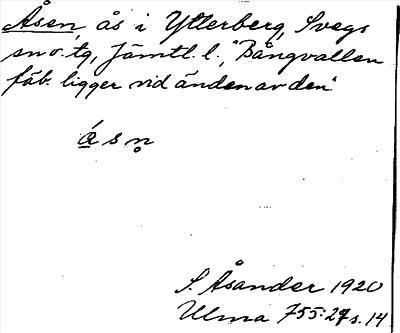 Åsen, ås i Ytterberg, Svegs
sn o. tg, Jämtl. l. "Bångvallen
fäb. ligger vid änden av den"
ǻ s n̥
S. Åsander 1920
Ulma 755:27 s. 14